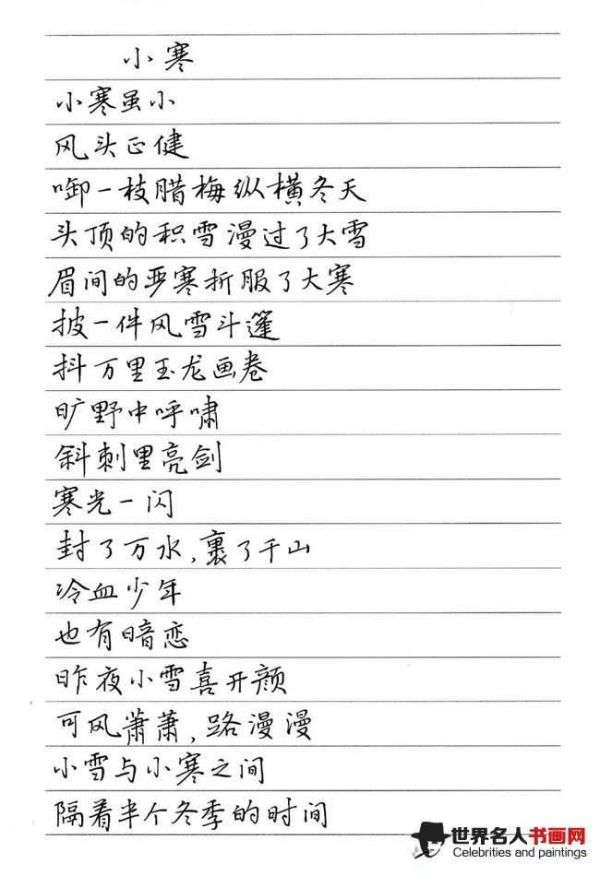 小寒
小寒虽小
风头正健
啣一枝腊梅纵横冬天
头顶的积雪漫过了大雪
眉间的严寒折服了大寒
披一件风雪斗篷
抖万里玉龙画卷
旷野中呼啸
斜刺里亮剑
寒光一闪
封了万水,裹了千山
冷血少年
也有暗恋
昨夜小雪喜开颜
可风萧萧,路漫漫
小雪与小寒之间
隔着半个冬季的时间
世界名人书画网
Celebrities and paintings